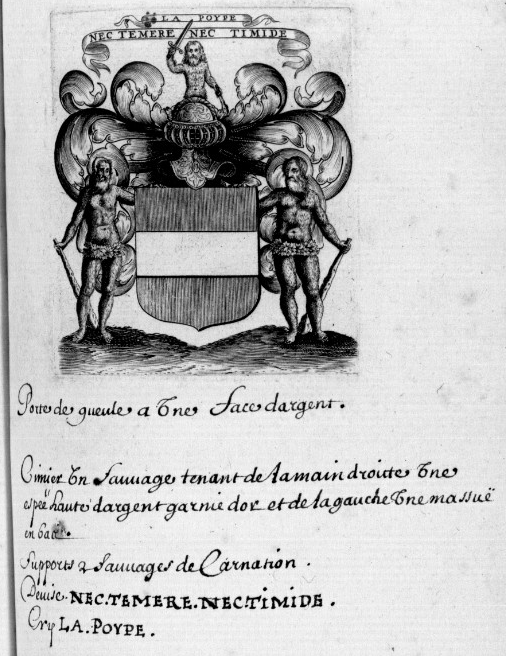 LA POYPE
NEC TEMERE NEC TIMIDE
Porte de gueule a Vne face dargent.
Cimier Vn Sauuage tenant de la main droicte Vne
espeë haute dargent garnie dor et de la gauche Vne massuë
en bar.
Supports 2 Sauuages de Carnation.
Deuise. NEC.TEMERE.NEC.TIMIDE.
Cry LA.POYPE.